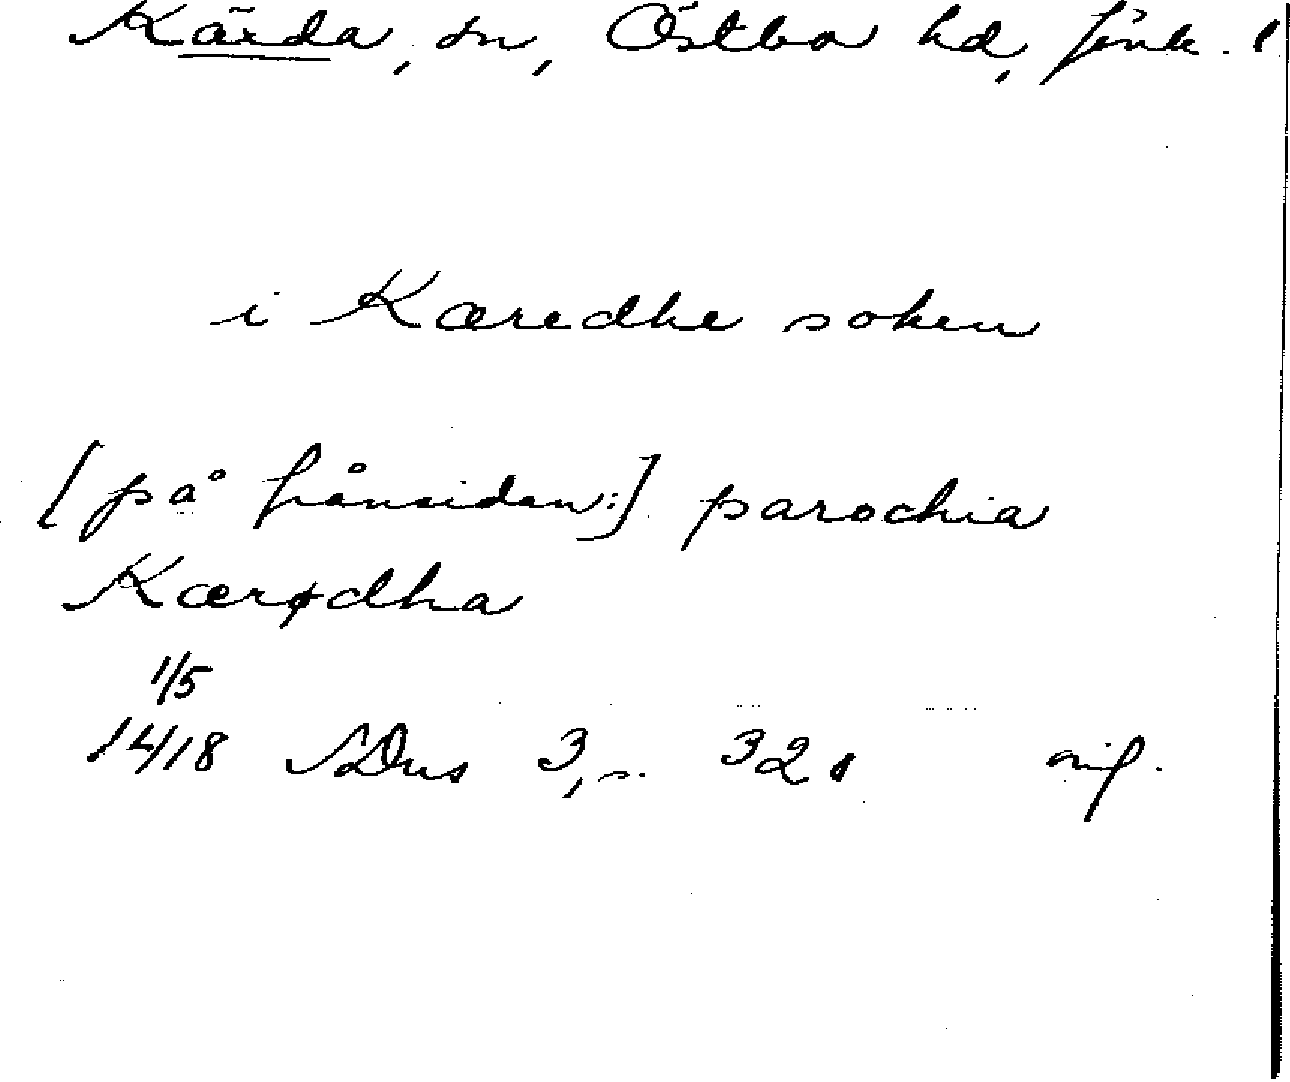 Kärda, sn, Östbo hd, Jönk. l
i Kæredhe soken
[på frånsidan:] parochia
Kærødha
1/5
1418 SDns 3, s. 321 orig.